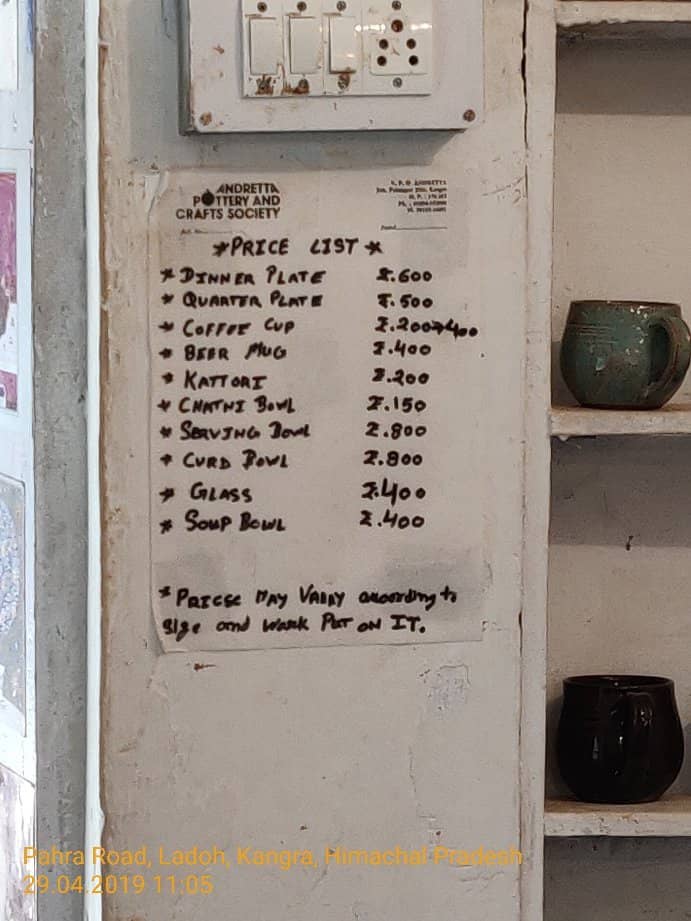 ANDRETTA
POTTERY AND
CRAFTS SOCIETY
V. P. O ANDRETTA
*PRICE LIST*
* DINNER PLATE ₹.600
* QUARTER PLATE ₹.500
* COFFEE CUP ₹.200→400
* BEER MUG ₹.400
* KATTORI ₹.200
* CHATNI BOWL ₹.150
* SERVING BOWL ₹.800
* CURD BOWL ₹.800
* GLASS ₹.400
* SOUP BOWL ₹.400
* PRICSE MAY VARAY according to
size and work PUT ON IT.
Pahra Road, Ladoh, Kangra, Himachal Pradesh
29.04.2019 11:05